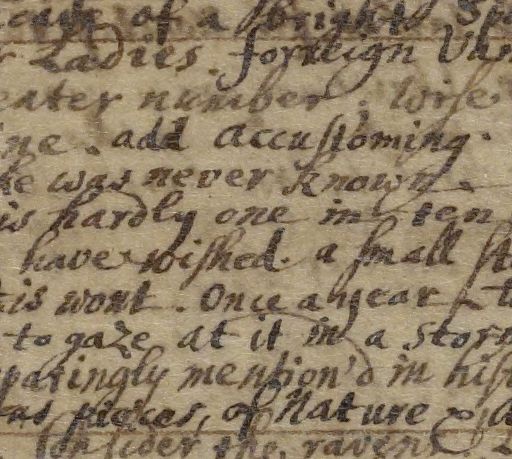 of a bright
Ladies. forreign
eater number. worse
ine. add accustoming.
he was never known
is hardly one in ten
have wished. a small
tis wont. Once a year
to gaze at it in a Stor
paringly mention'd in his
as pieces, of Nature &
Consider the ravens.